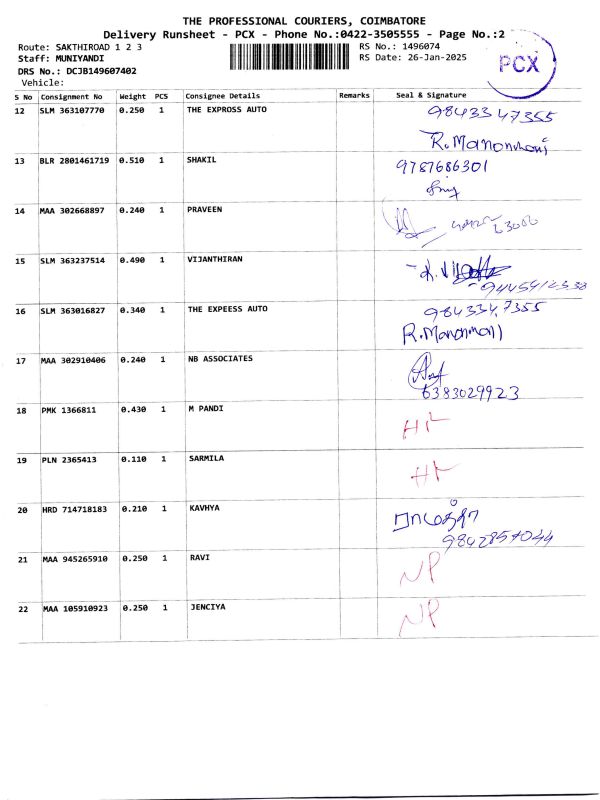 THE PROFESSIONAL COURIERS, COIMBATORE
Delivery Runsheet - PCX - Phone No.:0422-3505555 - Page No.:2
Route: SAKTHIROAD 1 2 3
RS No.: 1496074
Staff: MUNIYANDI
RS Date: 26-Jan-2025
DRS No.: DCJB149607402
Vehicle:
PCX
S No Consignment No Weight PCS Consignee Details Remarks Seal & Signature
12 SLM 363107770 0.250 1 THE EXPROSS AUTO 9843347355
R.Manonmani
13 BLR 2801461719 0.510 1 SHAKIL 9787686301
14 MAA 302668897 0.240 1 PRAVEEN
15 SLM 363237514 0.490 1 VIJANTHIRAN
16 SLM 363016827 0.340 1 THE EXPEESS AUTO 9843347355
R.Manonmani
17 MAA 302910406 0.240 1 NB ASSOCIATES
6383029923
18 PMK 1366811 0.430 1 M PANDI
19 PLN 2365413 0.110 1 SARMILA
20 HRD 714718183 0.210 1 KAVHYA
9842857044
21 MAA 945265910 0.250 1 RAVI NP
22 MAA 105910923 0.250 1 JENCIYA NP